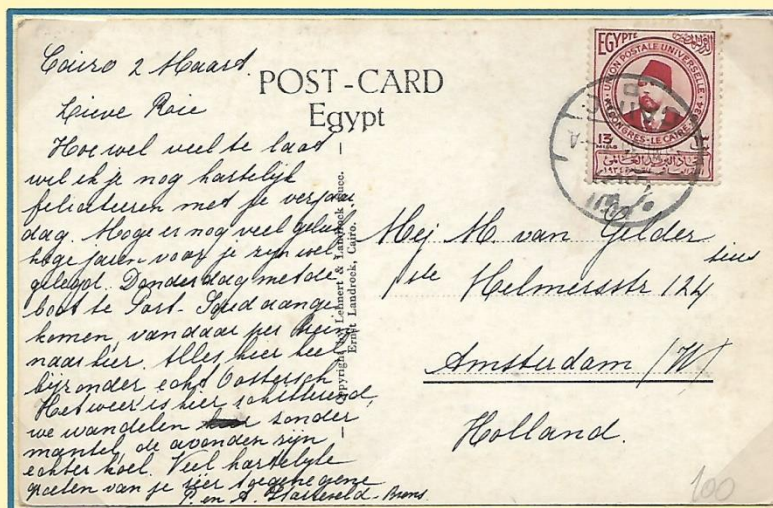 Cairo 2 Maart.
Lieve Roie
Hoe wel veel te laat
wil ik je nog hartelijk
feliciteeren met je verjaar
dag. Moge er nog veel geluk
kige jaren voor je zijn weg
gelegd. Donderdag met de
boot te Port-Said aange
komen, van daar per trein
naar hier. Alles hier heel
bijzonder echt Oostersch
Het weer is hier schitterend,
we wandelen zonder
mantel, de avonden zijn
echter koel. Veel hartelijke
groeten van je zeer toegenegene
P. en A.
POST-CARD
Egypt
Copyright by Lehnert & Landrock Succ.
Ernst Landrock, Cairo.
EGYPTE
UNION POSTALE UNIVERSELLE
Xe CONGRES - LE CAIRE 1934
13
MILLS
Mej M. van Gelder
1ste Helmersstr 124
huis
Amsterdam (W)
Holland.
100